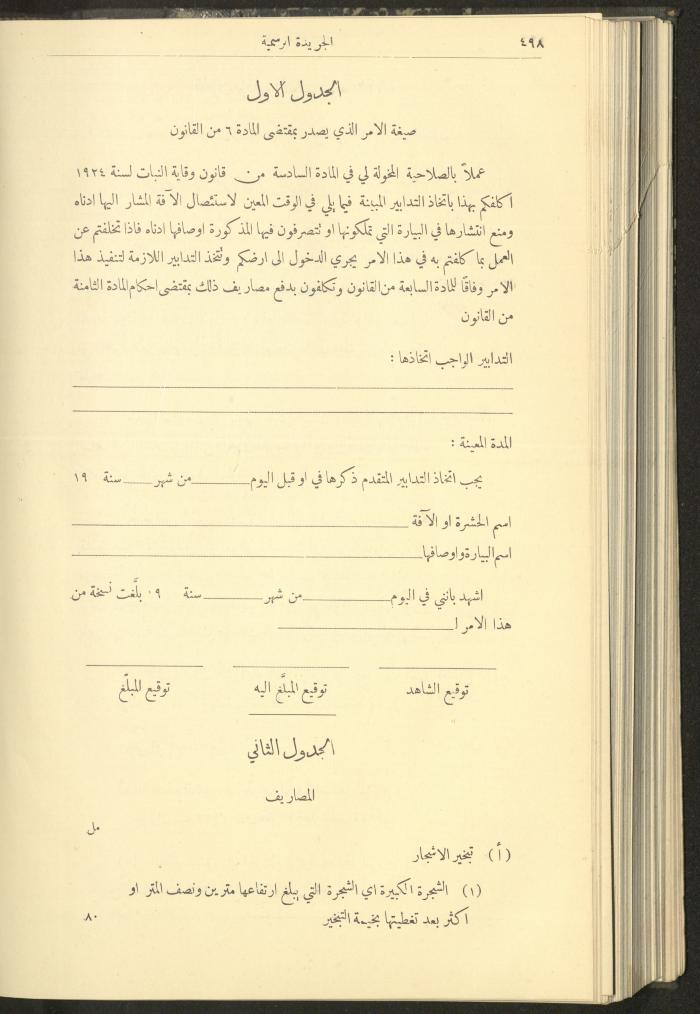 ٤٩٨
الجريدة الرسمية
الجدول الاول
صيغة الامر الذي يصدر بمقتضى المادة ٦ من القانون
عملاً بالصلاحية المخولة لي في المادة السادسة من قانون وقاية النبات لسنة ١٩٢٤
اكلفكم بهذا باتخاذ التدابير المبينة فيما يلي في الوقت المعين لاستئصال الآفة المشار اليها ادناه
ومنع انتشارها في البيارة التي تملكونها او تتصرفون فيها المذكورة اوصافها ادناه فاذا تخلفتم عن
العمل بما كلفتم به في هذا الامر يجري الدخول الى ارضكم وتتخذ التدابير اللازمة لتنفيذ هذا
الامر وفاقًا للمادة السابعة من القانون وتكلفون بدفع مصاريف ذلك بمقتضى احكام المادة الثامنة
من القانون
التدابير الواجب اتخاذها :
المدة المعينة :
يجب اتخاذ التدابير المتقدم ذكرها في او قبل اليوم من شهر سنة ١٩
اسم الحشرة او الآفة
اسم البيارة واوصافها
اشهد بانني في اليوم من شهر سنة ٠٩ بلَّغت نسخة من
هذا الامر لـ
توقيع الشاهد توقيع المبلَّغ اليه توقيع المبلّغ
الجدول الثاني
المصاريف
مل
(أ) تبخير الاشجار
(١) الشجرة الكبيرة اي الشجرة التي يبلغ ارتفاعها مترين ونصف المتر او
اكثر بعد تغطيتها بخيمة التبخير ٨٠